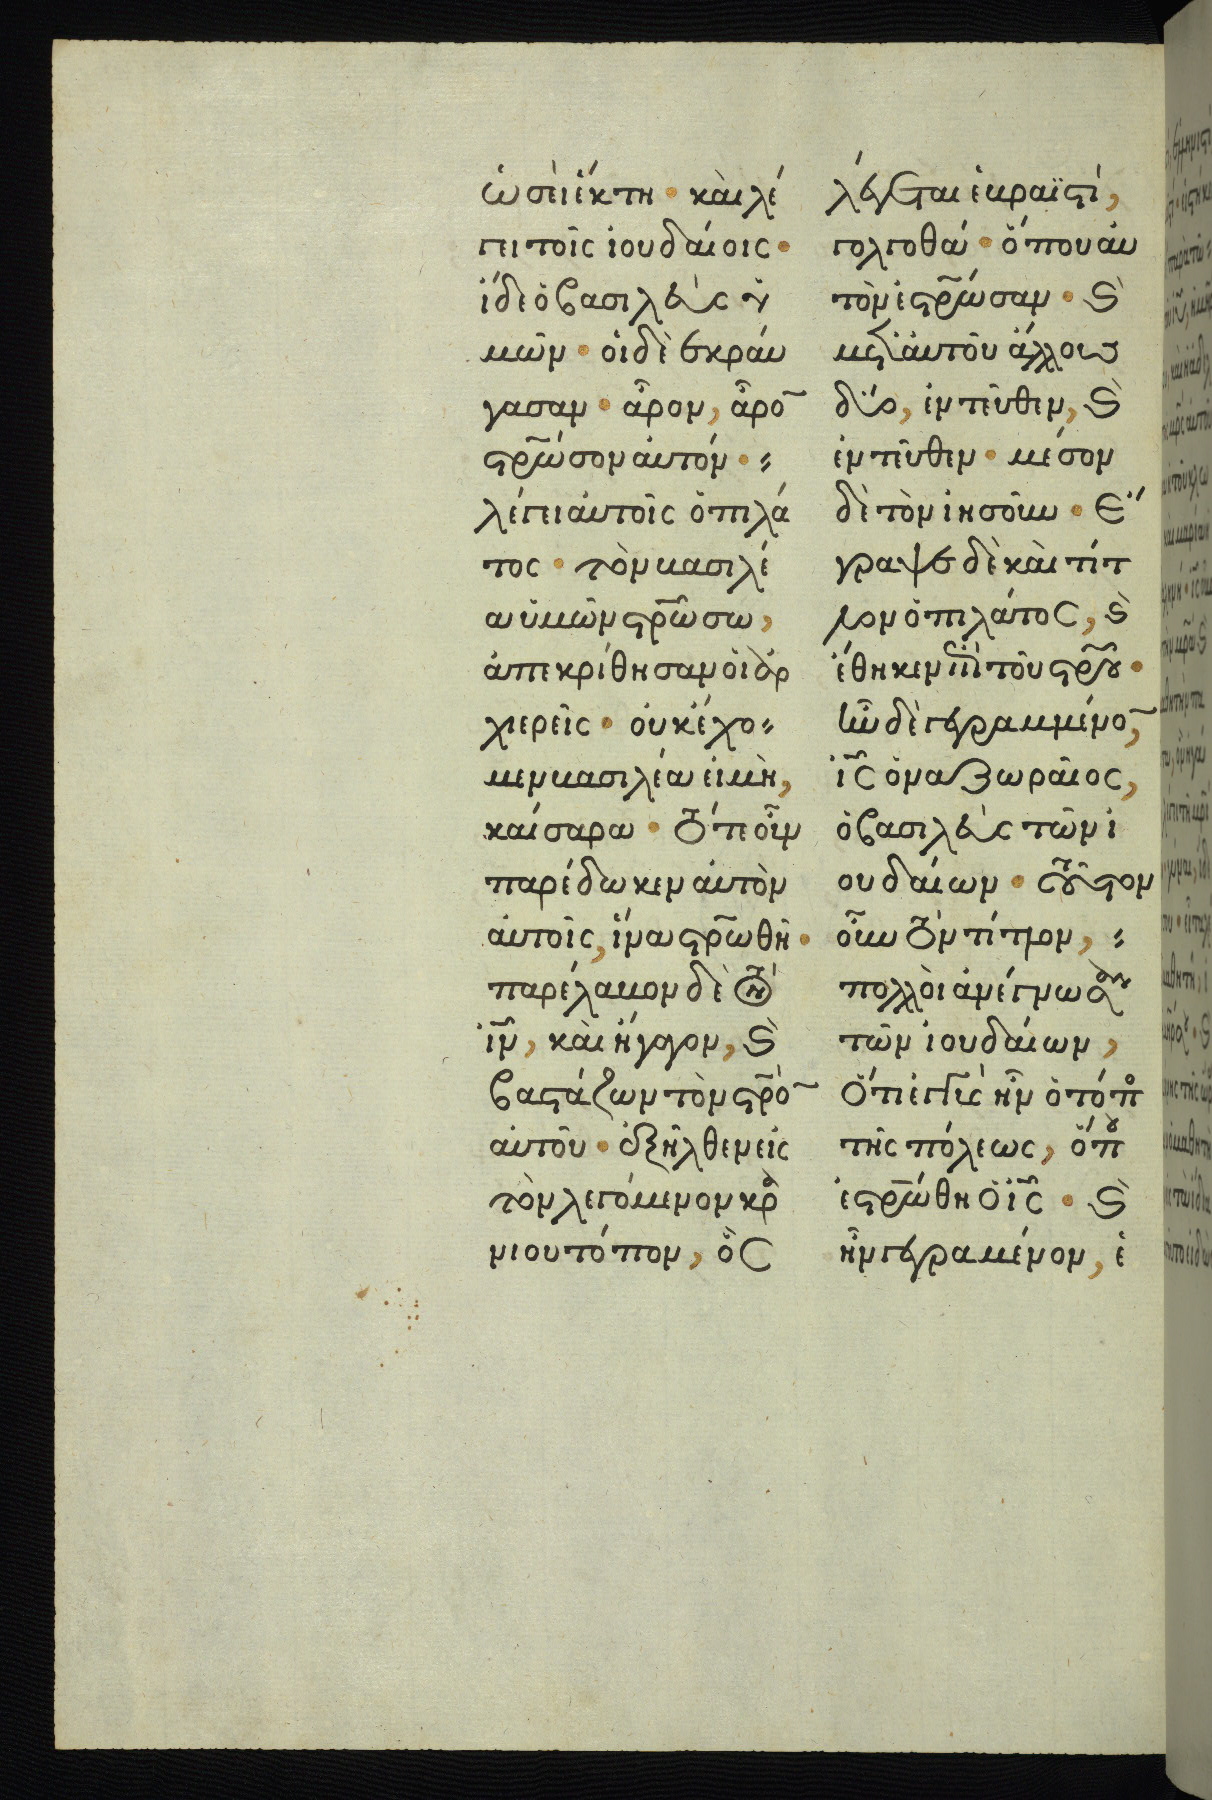 ὡσεὶ ἕκτη · καὶ λέ
γει τοῖς ἰουδαίοις ·
ἴδε ὁ βασιλεὺς ὑ
μῶν · οἱ δὲ ἐκραύ
γασαν · ἆρον, ἆρο̅
στρ̅ώσον αὐτόν ·
λέγει αὐτοῖς ὁ πιλά
τος · τὸν βασιλέ
α ὑμῶν στρ̅ώσω,
ἀπεκρίθησαν οἱ ἀρ
χιερεῖς · οὐκ ἔχο
μεν βασιλέα εἰ μὴ,
καίσαρα · τότε οὖν
παρέδωκεν αὐτὸν
αὐτοῖς, ἵνα στρ̅ωθῆ ·
παρέλαβον δὲ τὸν
ἰν̅, καὶ ἤγαγον, καὶ
βαστάζων τὸν στρ̅ὸ̅
αὐτοῦ · ἐξῆλθεν εἰς
τὸν λεγόμενον κρα
νίου τόπον, ὃς
λέγεται ἑβραϊστί,
γολγοθά · ὅπου αὐ
τὸν ἐστρ̅ώσαν · καὶ
μετ' αὐτοῦ ἄλλους
δύο, ἐντεῦθεν, καὶ
ἐντεῦθεν · μέσον
δὲ τὸν ἰησοῦν · ἔ
γραψε δὲ καὶ τίτ
λον ὁ πιλάτος, καὶ
ἔθηκεν ἐπὶ τοῦ στρ̅οῦ ·
ἦν δὲ γεγραμμένο̅,
ἰς̅ ὁ ναζωραῖος,
ὁ βασιλεὺς τῶν ἰ
ουδαίων · τοῦτον
οὖν τὸν τίτλον,
πολλοὶ ἀνέγνωσαν
τῶν ἰουδαίων,
ὅτι ἐγγὺς ἦν ὁ τόπος
τῆς πόλεως, ὅπου
ἐστρ̅ώθη ὁ ἰς̅ · καὶ
ἦν γεγραμένον, ἑ